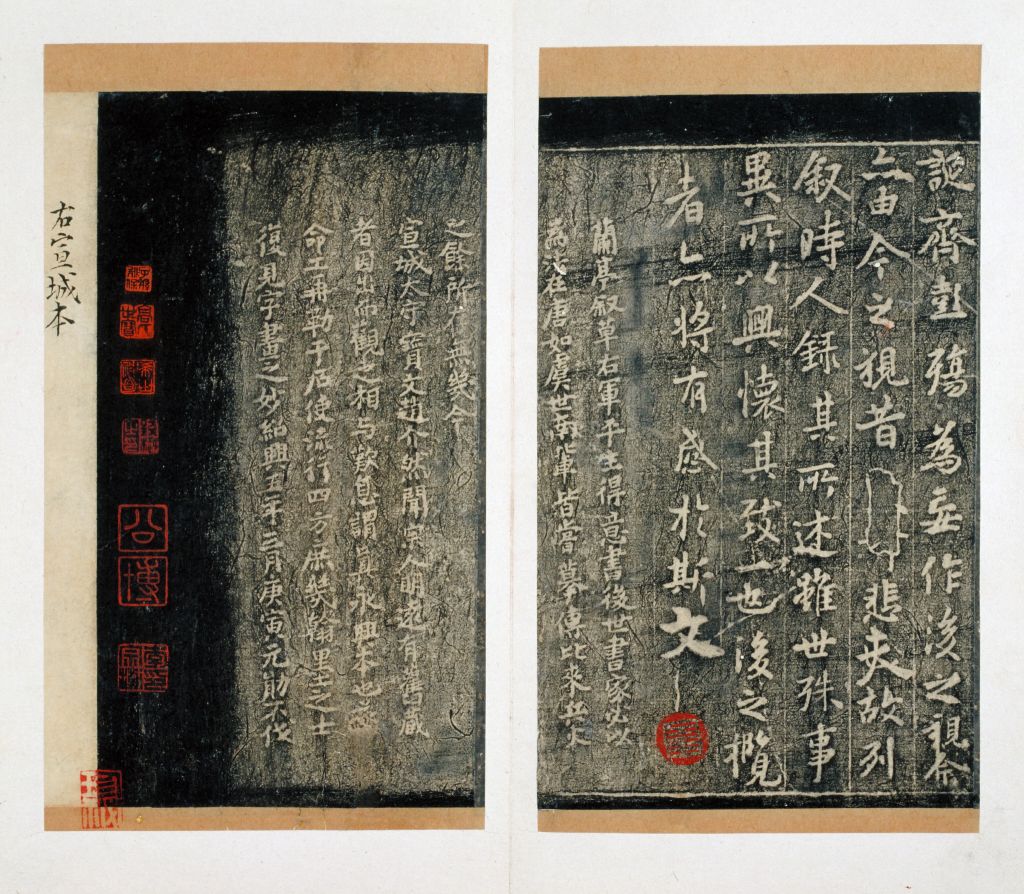 誕齊彭殤為妄作後之視今
亦由今之視昔悲夫故列
叙時人錄其所述雖世殊事
異所以興懷其致一也後之攬
者亦將有感於斯文
蘭亭叙草右軍平生得意書後世書家必以
為在唐如虞世南軰皆嘗摹傳比來兵火
之餘所存無幾今
宣城太守寶文趙公聞宗人明遠有舊藏
者因出而觀之相與歎息謂真永興本也
命工勒于石使流行四方庶幾翰墨之士
復見字畫之妙紹興五年三月庚寅元勛不伐
公博
右宣城本